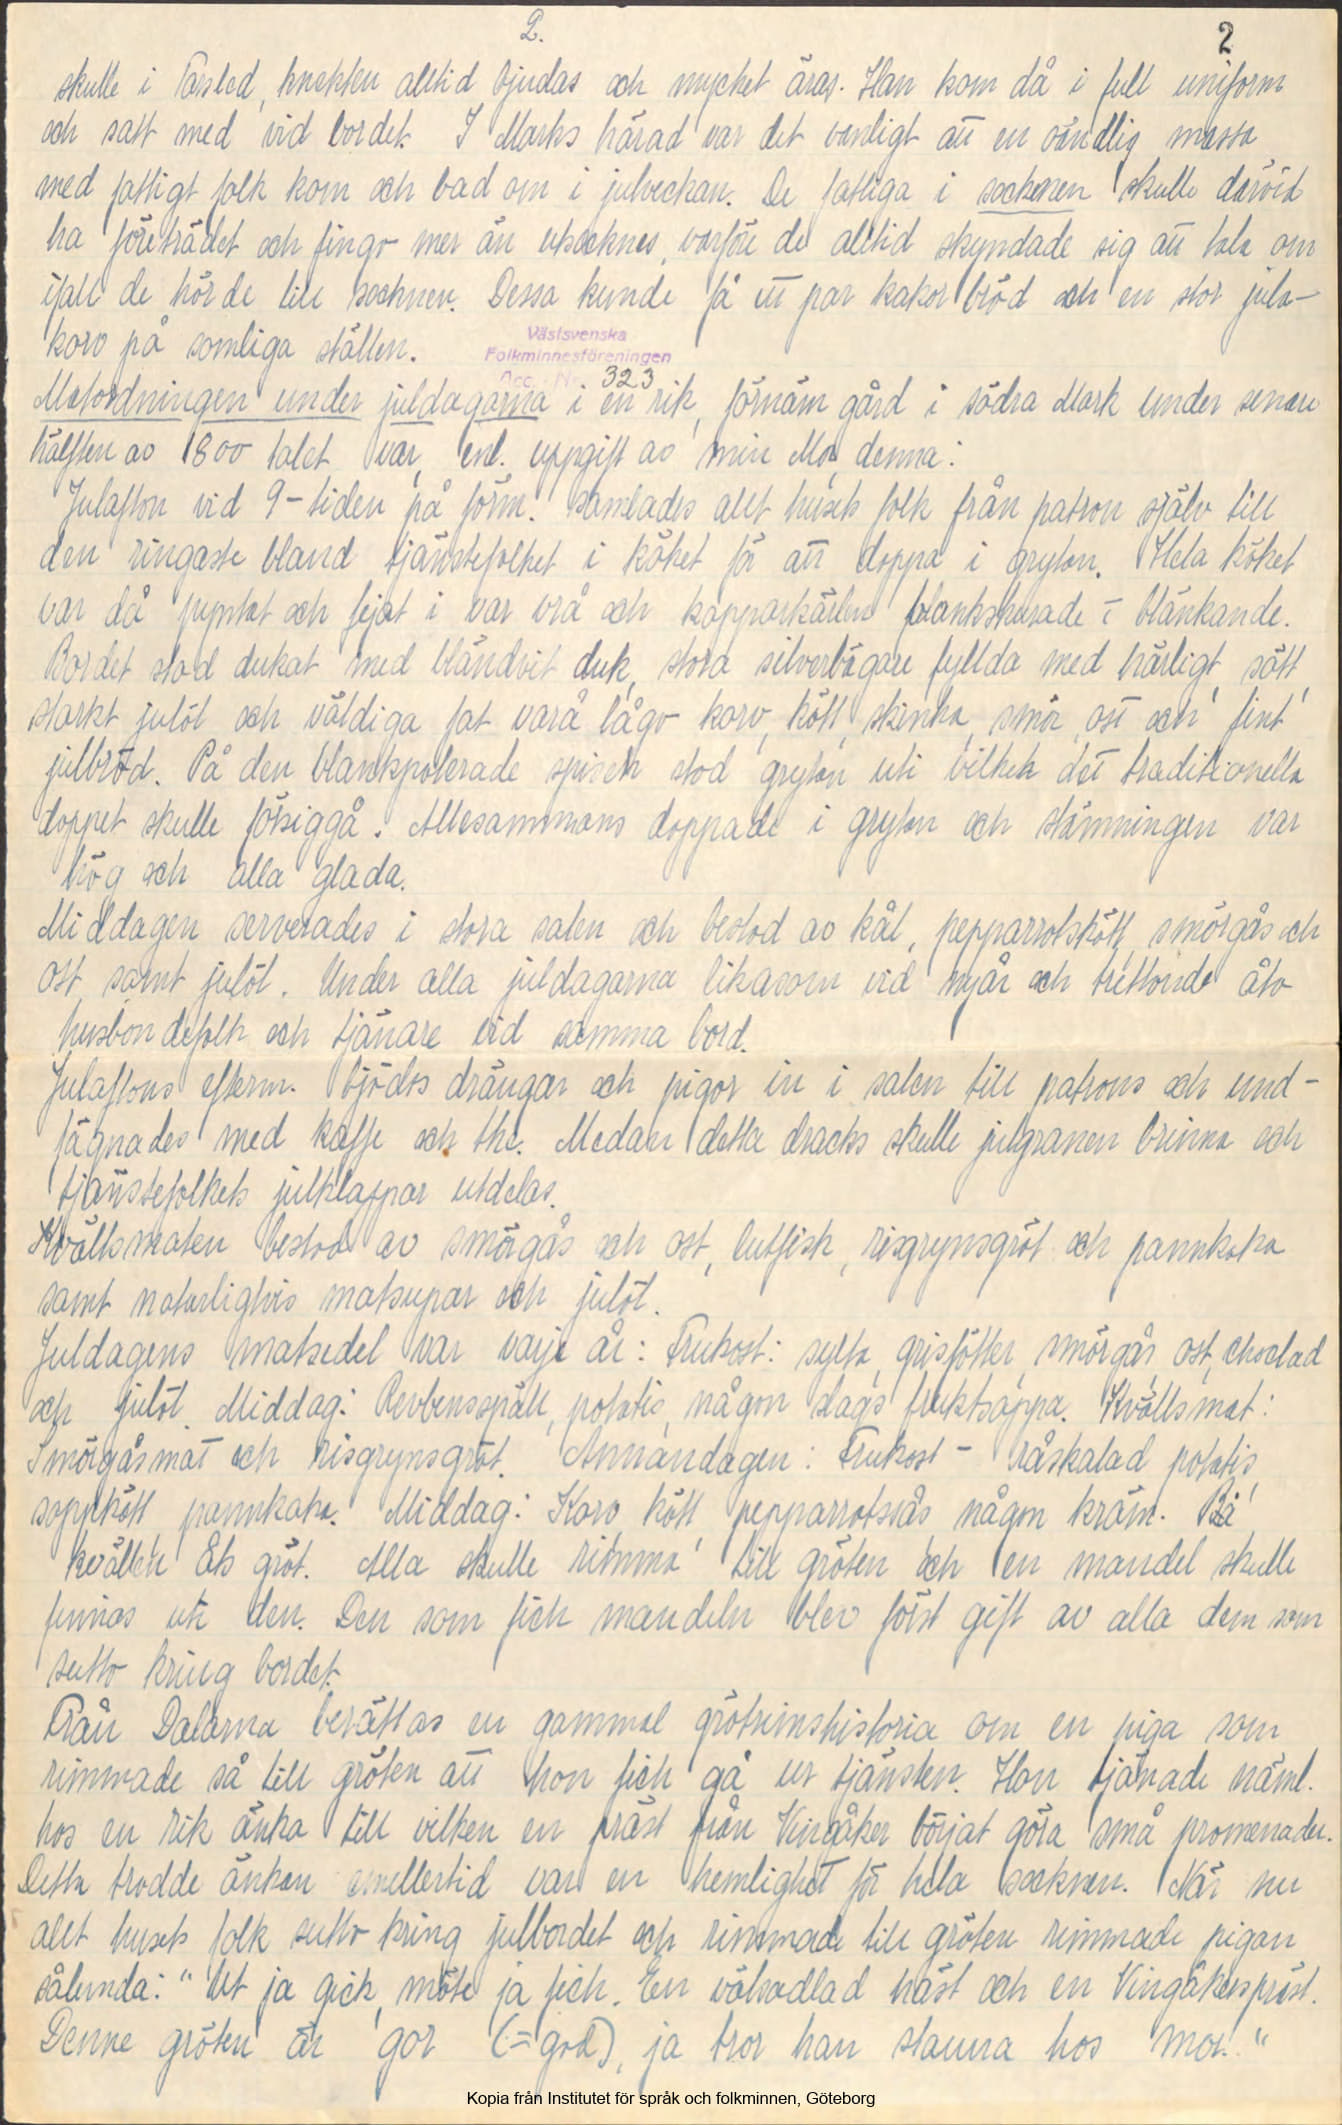 2.
2
skulle i Tarsled, knekten alltid bjudas och mycket äras. Han kom då i full uniform
och satt med vid bordet. I Marks härad var det vanligt att en oändlig massa
med fattigt folk kom och bad om i julveckan. De fattiga i socknen skulle därvid
ha företrädet och fingo mer än utsocknes, varför de alltid skyndade sig att tala om
ifall de hörde till socknen. Dessa kunde få ett par kakor bröd och en stor jula-
korv på somliga ställen.
Västsvenska
Folkminnesföreningen
Acc. Nr. 323
Matordningen under juldagarna i en rik, förnäm gård i södra Mark under senare
hälften av 1800 talet var, enl. uppgift av min Mor denna:
Julafton vid 9-tiden på förm. samlades allt husets folk från patron själv till
den ringaste bland tjänstefolket i köket för att doppa i grytan. Hela köket
var då pyntat och fejat i var vrå och kopparkärlen blankskurade o blänkande.
Bordet stod dukat med bländvit duk, stora silverbägare fyllda med härligt, sött,
starkt julöl och väldiga fat varå lågo korv, kött, skinka, smör, ost och fint
julbröd. På den blankpolerade spiseln stod grytan uti vilken det traditionella
doppet skulle försiggå. Allesammans doppade i grytan och stämningen var
hög och alla glada.
Middagen serverades i stora salen och bestod av kål, pepparrotskött, smörgås och
ost samt julöl. Under alla juldagarna likasom vid nyår och trettonde åto
husbondefolk och tjänare vid samma bord.
Julaftons efterm. bjödos drängar och pigor in i salen till patrons och und-
fägnades med kaffe och the. Medan detta dracks skulle julgranen brinna och
tjänstefolkets julklappar utdelas.
Kvällsmaten bestod av smörgås och ost, lutfisk, risgrynsgröt och pannkaka
samt naturligtvis matsupar och julöl.
Juldagens matsedel var varje år: Frukost: sylta, grisfötter, smörgås, ost, choclad
och julöl. Middag: Revbensspäll, potatis, någon slags fruktsoppa. Kvällsmat:
Smörgåsmat och risgrynsgröt. Annandagen: Frukost - råskalad potatis,
soppkött pannkaka. Middag: Korv kött pepparrotssås någon kräm. På
kvällen åts gröt. Alla skulle "rimma" till gröten och en mandel skulle
finnas uti den. Den som fick mandeln blev först gift av alla dem som
sutto kring bordet.
Från Dalarna berättas en gammal grötrimshistoria om en piga som
rimmade så till gröten att hon fick gå ur tjänsten. Hon tjänade näml.
hos en rik änka till vilken en präst från Vingåker börjat göra små promenader.
Detta trodde änkan emellertid var en hemlighet för hela socknen. När nu
allt husets folk sutto kring julbordet och rimmade till gröten rimmade pigan
sålunda: "Ut ja gick, möte ja fick. En välsadlad häst och en Vingåkerspräst.
Denne gröten är gor (=god), ja tror han stanna hos mor."
Kopia från Institutet för språk och folkminnen, Göteborg